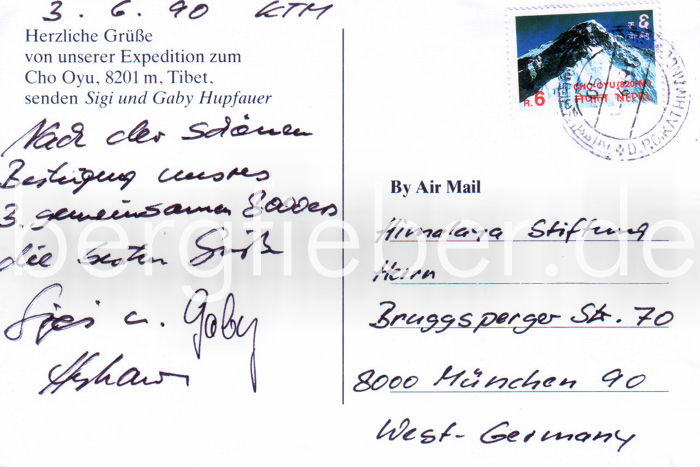 3. 6. 90 KTM
Herzliche Grüße
von unserer Expedition zum
Cho Oyu, 8201 m, Tibet,
senden Sigi und Gaby Hupfauer
Nach der schönen
Besteigung unsres
3. gemeinsamen 8000ers
die besten Grüße
Sigi u. Gaby
Hupfauer
CHO-OYU (8201M.)
नेपाल NEPAL
R. 6
By Air Mail
Himalaya Stiftung
Herrn
Bruggsperger Str. 70
8000 München 90
West-Germany
bergfieber.de